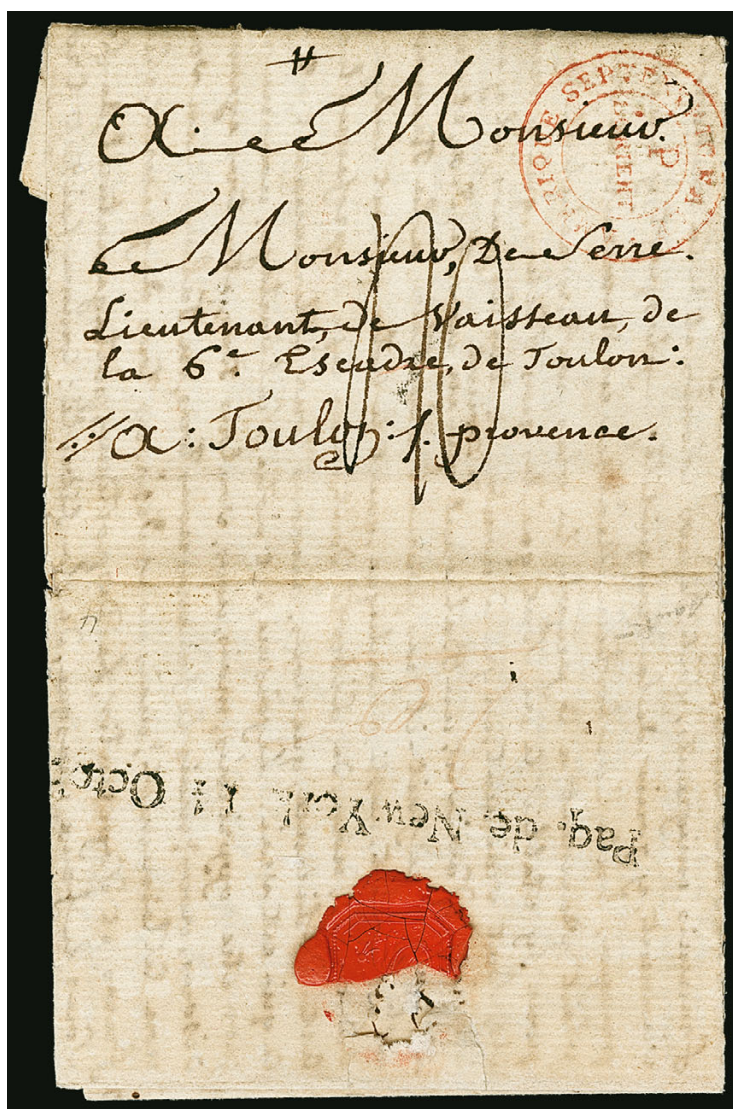 A Monsieur.
Monsieur, De Serre.
Lieutenant, de Vaisseau, de
la 6e. Escadre, de Toulon:
a: Toulon: provence.
SEPTENT
P
L'ORIENT
Paq. de New York 11 Octo